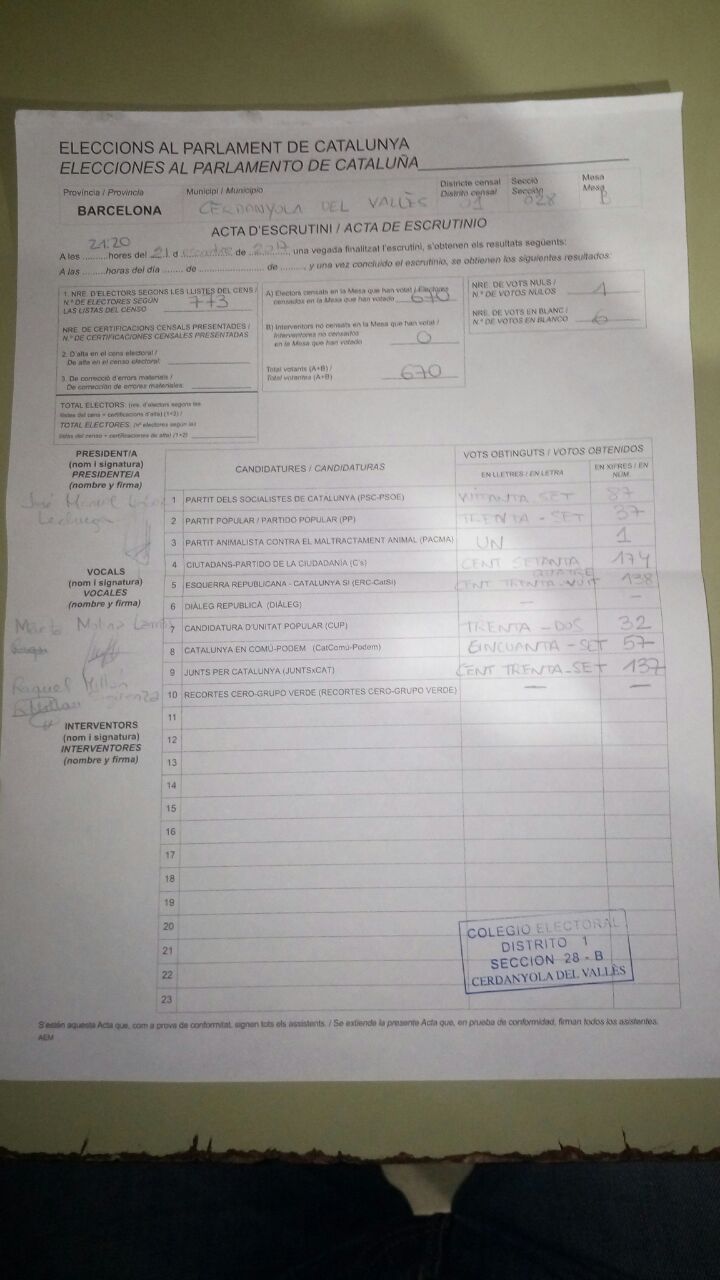 ELECCIONS AL PARLAMENT DE CATALUNYA
ELECCIONES AL PARLAMENTO DE CATALUÑA
Província / Provincia
BARCELONA
Municipi / Municipio
CERDANYOLA DEL VALLÈS
Districte censal
Distrito censal
01
Secció
Sección
028
Mesa
Mesa
B
ACTA D'ESCRUTINI / ACTA DE ESCRUTINIO
21:20
A les .........hores del 21 d de 2017 una vegada finalitzat l'escrutini, s'obtenen els resultats següents:
A las .........horas del día ....... de ........................ de ........, y una vez concluido el escrutinio, se obtienen los siguientes resultados:
1. NRE. D'ELECTORS SEGONS LES LLISTES DEL CENS /
N.º DE ELECTORES SEGÚN
LAS LISTAS DEL CENSO
773
NRE. DE CERTIFICACIONS CENSALS PRESENTADES /
N.º DE CERTIFICACIONES CENSALES PRESENTADAS
2. D'alta en el cens electoral /
De alta en el censo electoral:
3. De correcció d'errors materials /
De corrección de errores materiales:
TOTAL ELECTORS: (nre. d'electors segons les
llistes del cens + certificacions d'alta) (1+2) /
TOTAL ELECTORES: (nº electores según las
listas del censo + certificaciones de alta) (1+2)
A) Electors censats en la Mesa que han votat / Electores
censados en la Mesa que han votado 670
B) Interventors no censats en la Mesa que han votat /
Interventores no censados
en la Mesa que han votado 0
Total votants (A+B) /
Total votantes (A+B) 670
NRE. DE VOTS NULS /
N.º DE VOTOS NULOS 1
NRE. DE VOTS EN BLANC /
N.º DE VOTOS EN BLANCO 6
PRESIDENT/A
(nom i signatura)
PRESIDENTE/A
(nombre y firma)
José Manuel
VOCALS
(nom i signatura)
VOCALES
(nombre y firma)
Marta Molina
Raquel Millan
INTERVENTORS
(nom i signatura)
INTERVENTORES
(nombre y firma)
CANDIDATURES / CANDIDATURAS
VOTS OBTINGUTS / VOTOS OBTENIDOS
EN LLETRES / EN LETRA
EN XIFRES / EN NÚM.
1 PARTIT DELS SOCIALISTES DE CATALUNYA (PSC-PSOE) VUITANTA SET 87
2 PARTIT POPULAR / PARTIDO POPULAR (PP) TRENTA - SET 37
3 PARTIT ANIMALISTA CONTRA EL MALTRACTAMENT ANIMAL (PACMA) UN 1
4 CIUTADANS-PARTIDO DE LA CIUDADANÍA (C's) CENT SETANTA QUATRE 174
5 ESQUERRA REPUBLICANA - CATALUNYA SÍ (ERC-CatSí) CENT TRENTA-VUIT 138
6 DIÀLEG REPUBLICÀ (DIÀLEG) — —
7 CANDIDATURA D'UNITAT POPULAR (CUP) TRENTA - DOS 32
8 CATALUNYA EN COMÚ-PODEM (CatComú-Podem) CINCUANTA - SET 57
9 JUNTS PER CATALUNYA (JUNTSxCAT) CENT TRENTA-SET 137
10 RECORTES CERO-GRUPO VERDE (RECORTES CERO-GRUPO VERDE) — —
11
12
13
14
15
16
17
18
19
20
21
22
23
COLEGIO ELECTORAL
DISTRITO 1
SECCION 28 - B
CERDANYOLA DEL VALLÈS
S'estén aquesta Acta que, com a prova de conformitat, signen tots els assistents. / Se extiende la presente Acta que, en prueba de conformidad, firman todos los asistentes.
AEM